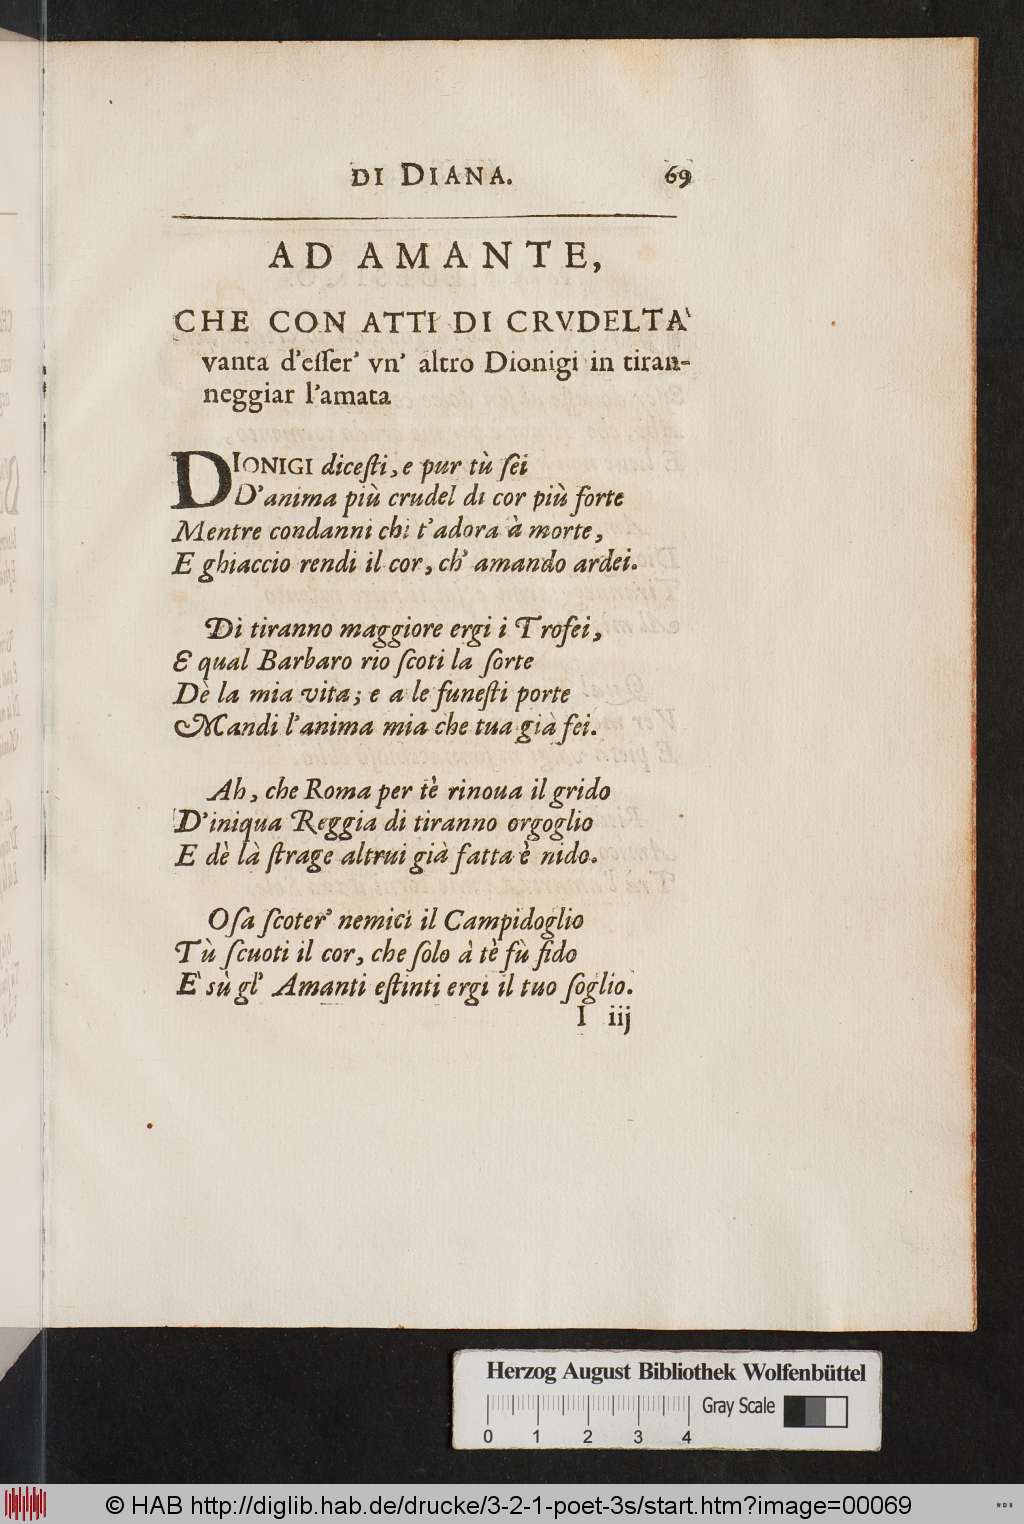 DI DIANA. 69
AD AMANTE,
CHE CON ATTI DI CRVDELTA'
vanta d'eſſer' vn' altro Dionigi in tiran-
neggiar l'amata
DIONIGI diceſti, e pur tù ſei
D'anima più crudel di cor più forte
Mentre condanni chi t'adora à morte,
E ghiaccio rendi il cor, ch' amando ardei.
Di tiranno maggiore ergi i Trofei,
E qual Barbaro rio ſcoti la ſorte
Dè la mia vita; e a le funeſti porte
Mandi l'anima mia che tua già fei.
Ah, che Roma per tè rinoua il grido
D'iniqua Reggia di tiranno orgoglio
E dè là ſtrage altrui già fatta è nido.
Oſa ſcoter' nemici il Campidoglio
Tù ſcuoti il cor, che ſolo à tè fù fido
E' sù gl' Amanti eſtinti ergi il tuo ſoglio.
I iij
Herzog August Bibliothek Wolfenbüttel
Gray Scale
0 1 2 3 4
© HAB http://diglib.hab.de/drucke/3-2-1-poet-3s/start.htm?image=00069